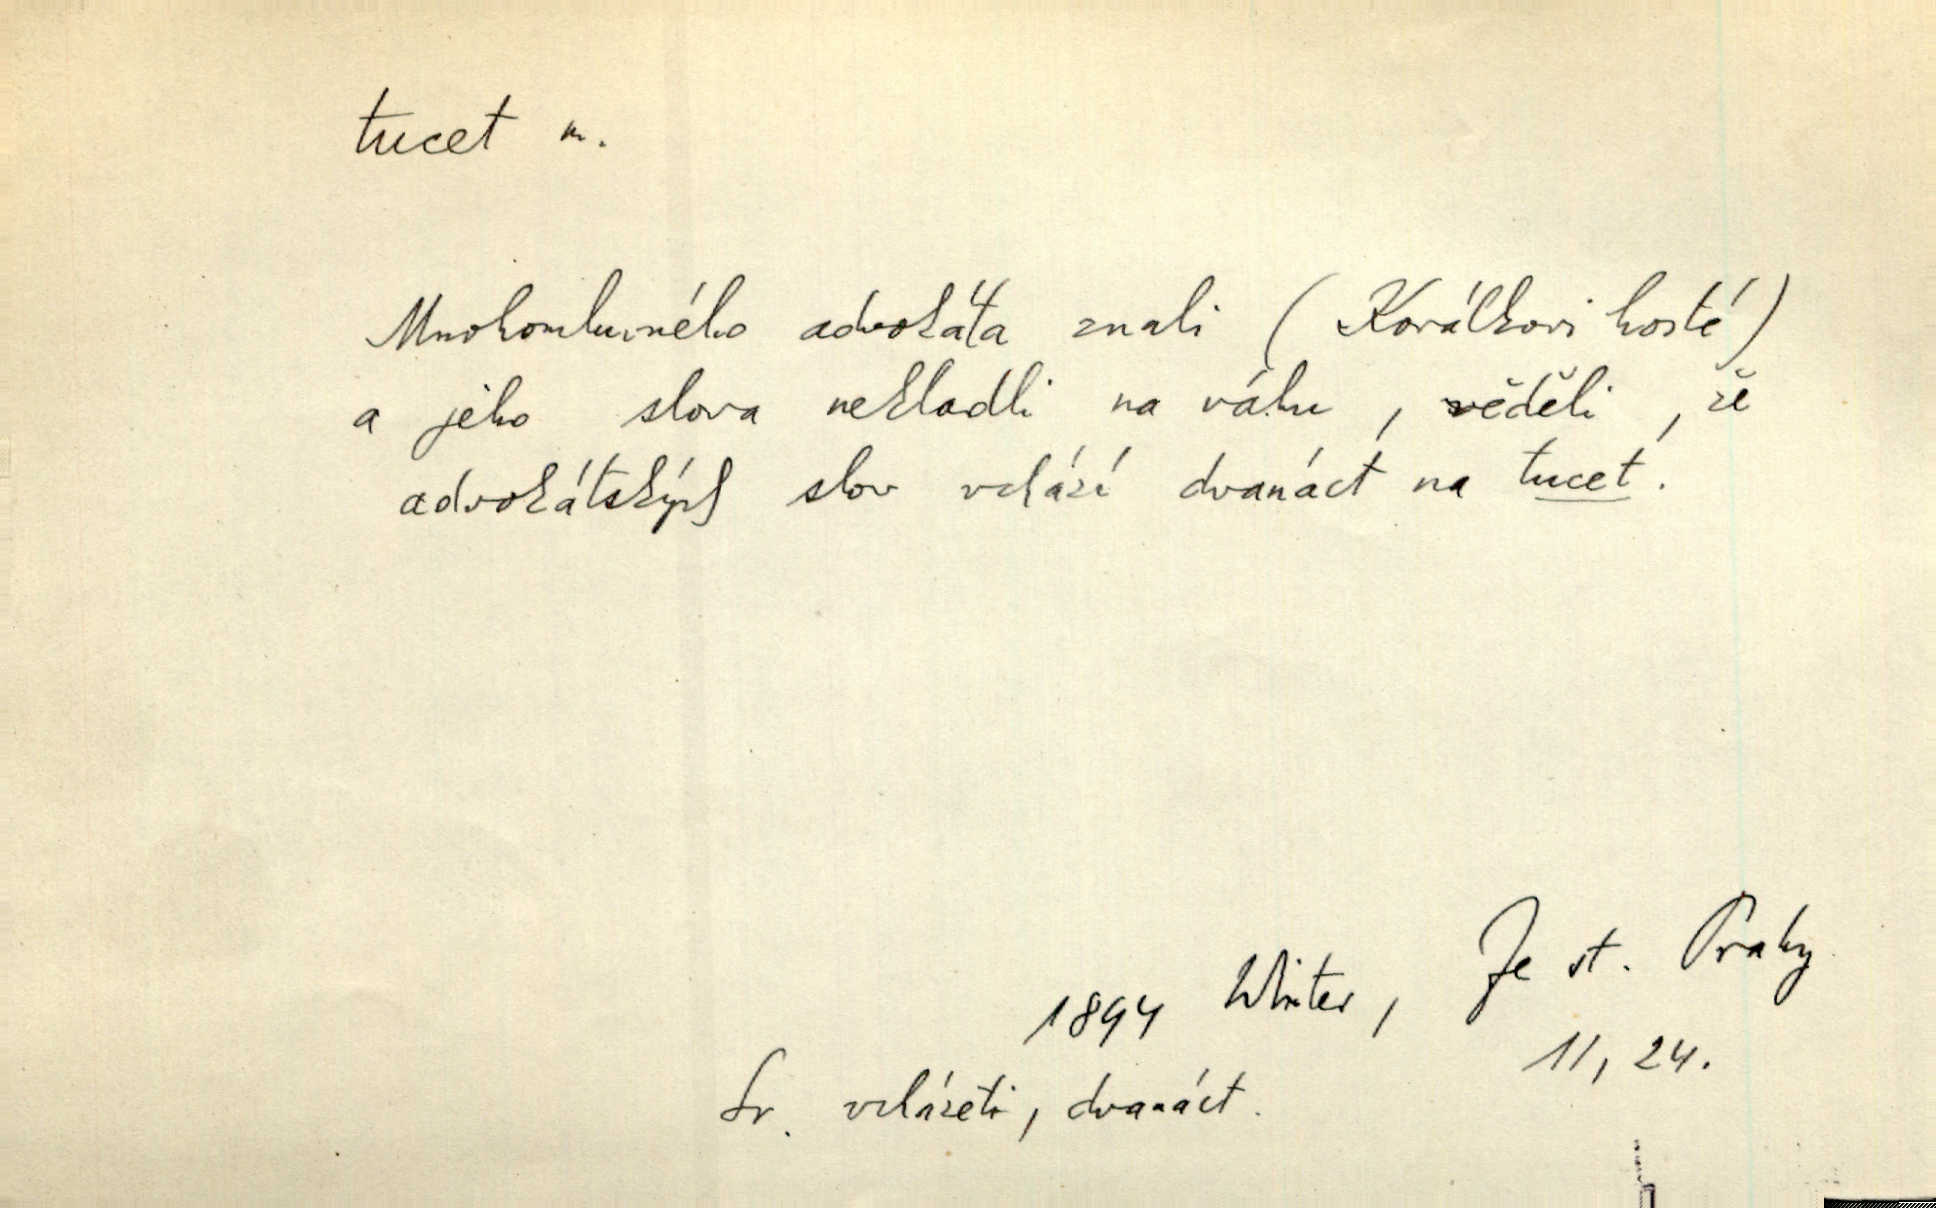 tucet m.
Mnohomluvného advokáta znali (Koválkovi hosté)
a jeho slova nekladli na váhu, věděli, že
advokátských slov vchází dvanáct na tucet.
1894 Winter, Ze st. Prahy
11, 24.
Sr. vcházeti, dvanáct.